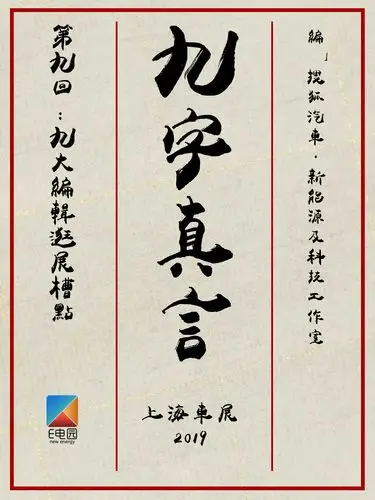 编」搜狐汽車·新能源及科技工作室
九字真言
上海車展
2019
第九回:九大编輯逛展槽點
E电园
new energy